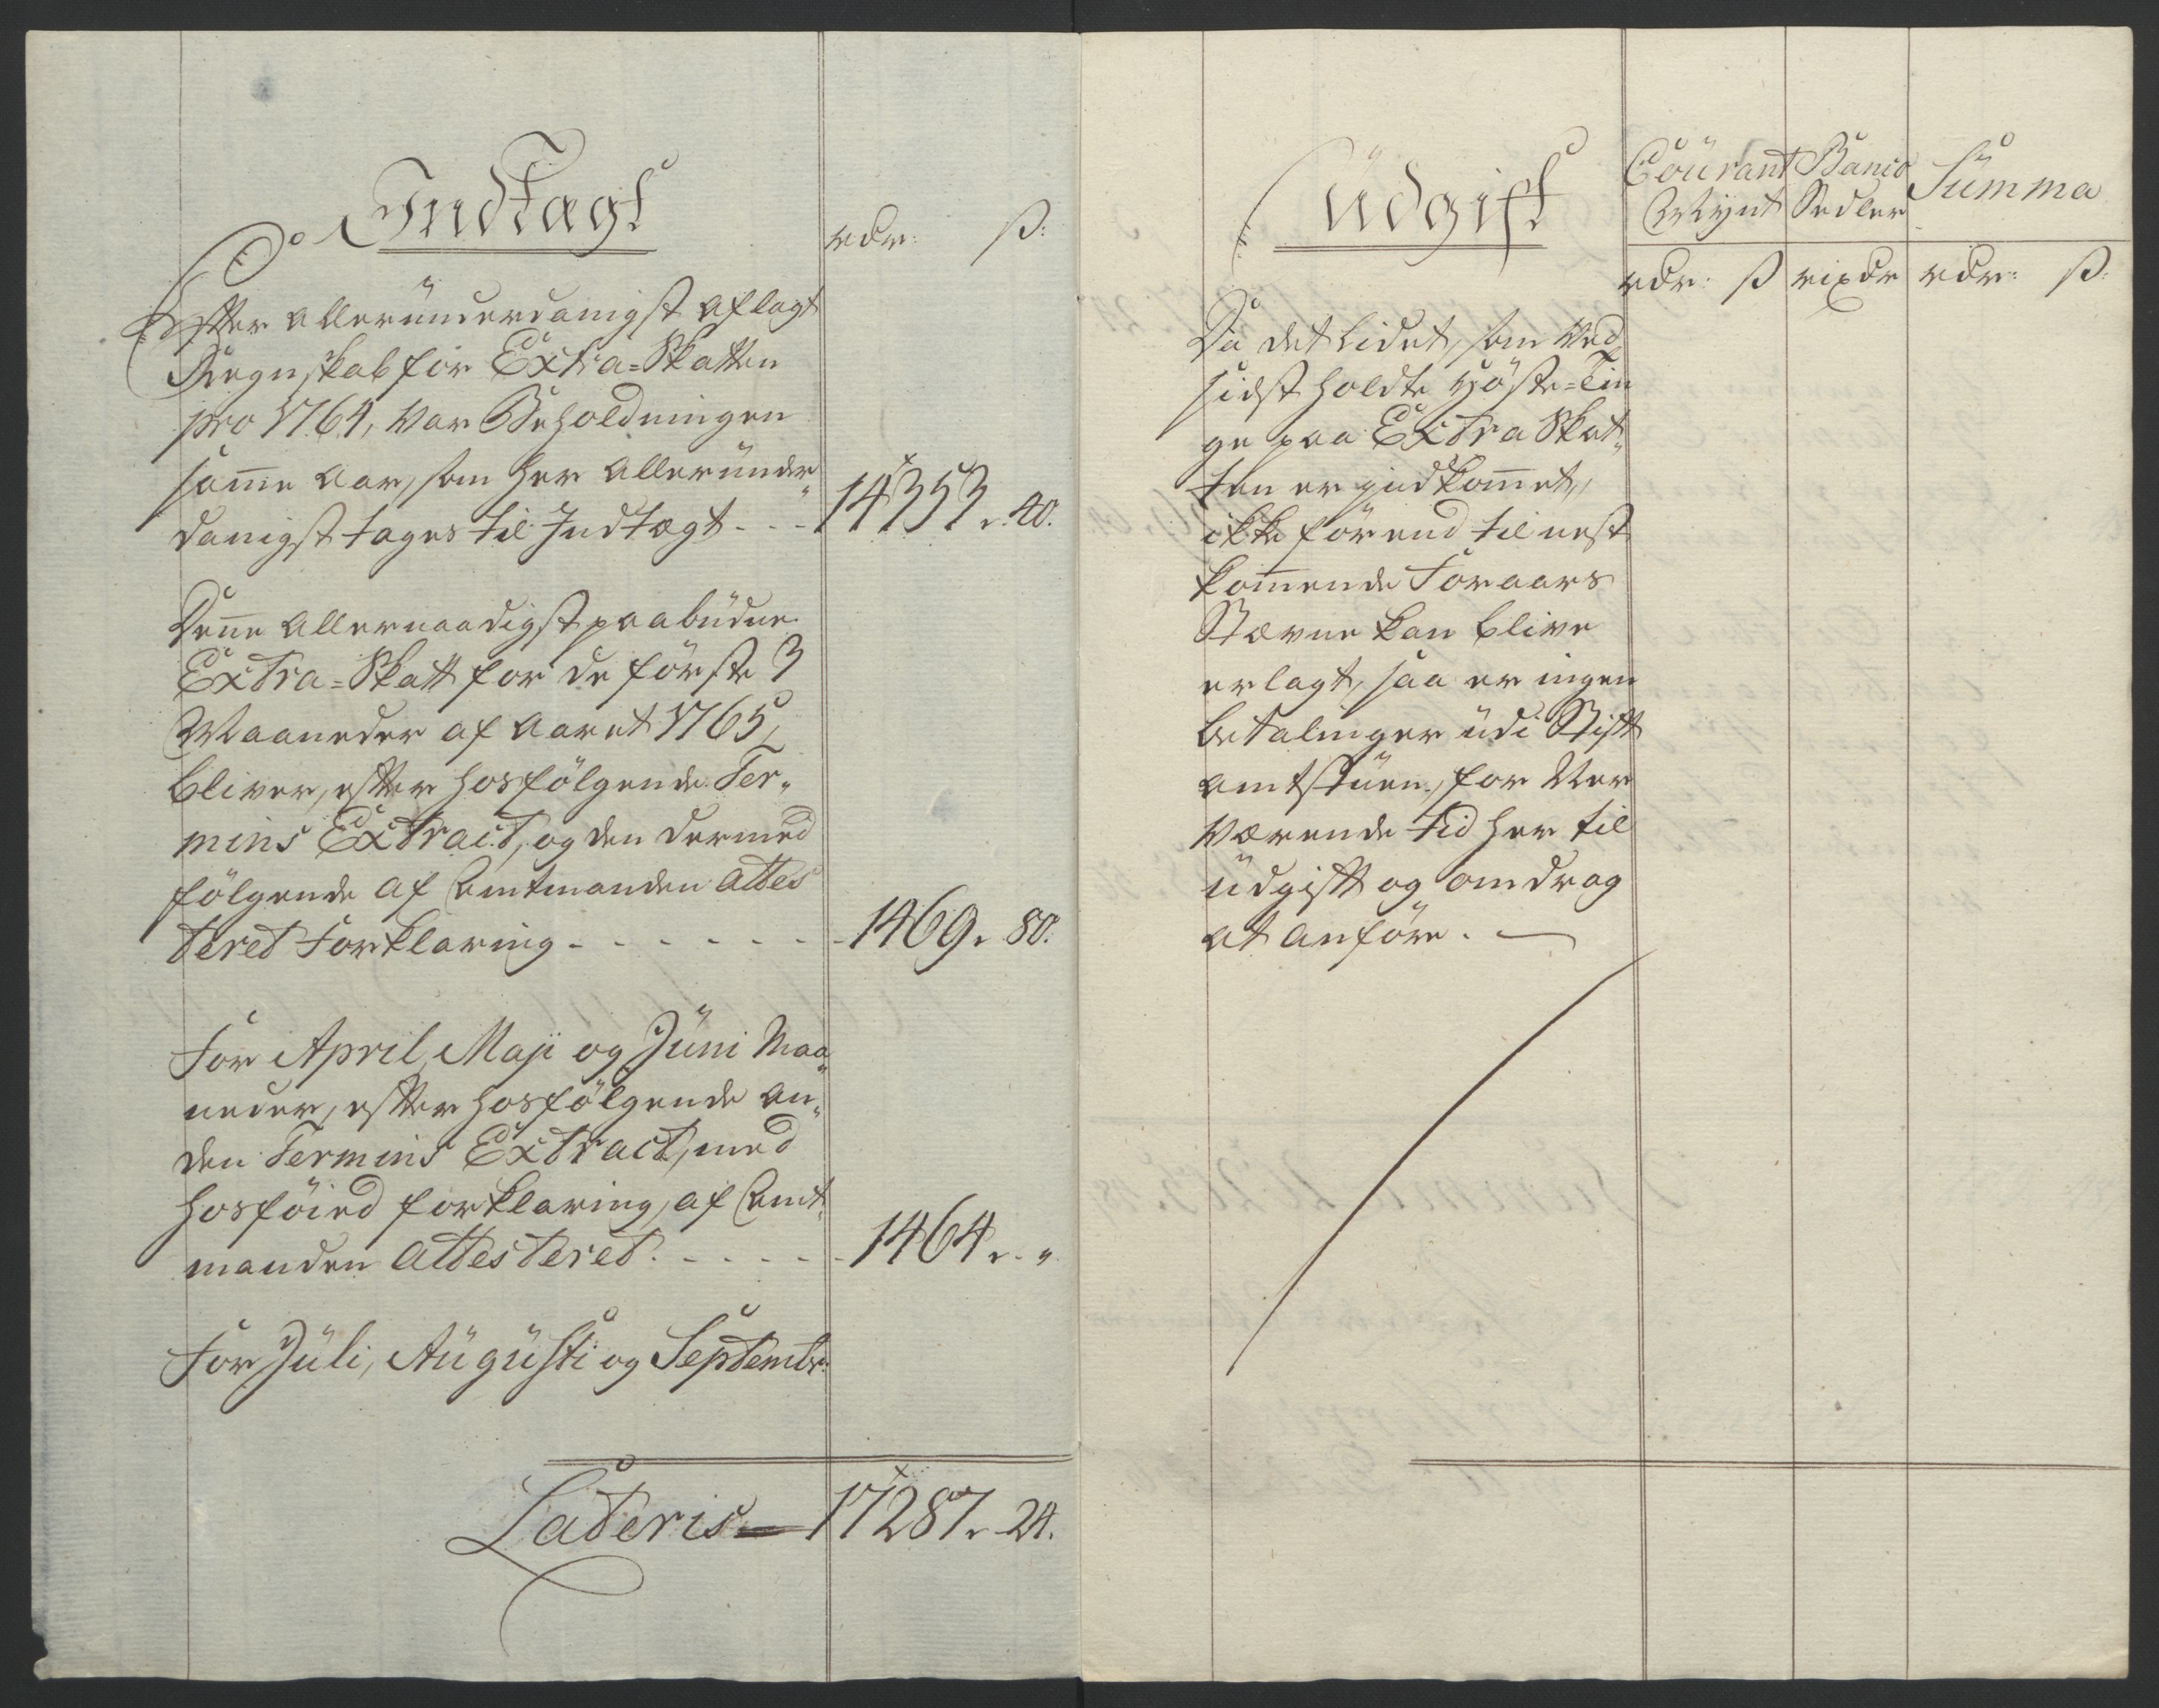 Indtægt
rdr: ß:
Efter alleründerdanigst aflagt
Regnskab for Extra=Skatten
pro 1764, var Beholdningen
sam̄e aar, som her alleründer„
danigst tages til Indtægt - - - 14353 „ 40.
Den̄e allernaadigst paabüdne
Extra=Skatt for de förste 3
Maaneder af aaret 1765,
bliver, efter hosfölgende Ter„
mins Extract, og den dermed
fölgende af Amtmanden attes
teret Forklaring - - - - - - - 1469 „ 80.
For April, Maji og Jüni Maa„
neder, efter hosfölgende an„
den Termins Extract, med
hosföied forklaring, af Amt„
manden attesteret. - - - - - 1464 „ - „
For Jüli, Aügüsti og Septembr:
Lateris - 17287 „ 24.
Üdgift
Coürant Banco Süm̄a
Mynt Sedler
rdr: ß rixdr rdr: ß:
Da det lidet, som ved
sidst holdte Höste=Tin
ge paa Extra Skat„
ten er indkom̄et,
ikke förend til nest
kom̄ende Foraars
Stævne kan blive
erlagt, saa er ingen
betalinger üdi Stift
amtstüen, for Nær
værende tid her til
üdgift og omdrag
at anföre. —